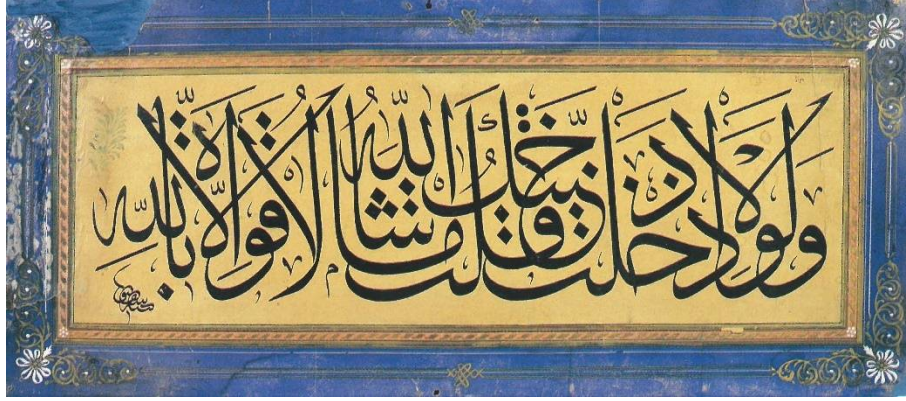 وَلَوْلَا إِذْ دَخَلْتَ جَنَّتَكَ قُلْتَ مَا شَاءَ اللّٰهُ لَا قُوَّةَ إِلَّا بِاللّٰهِ